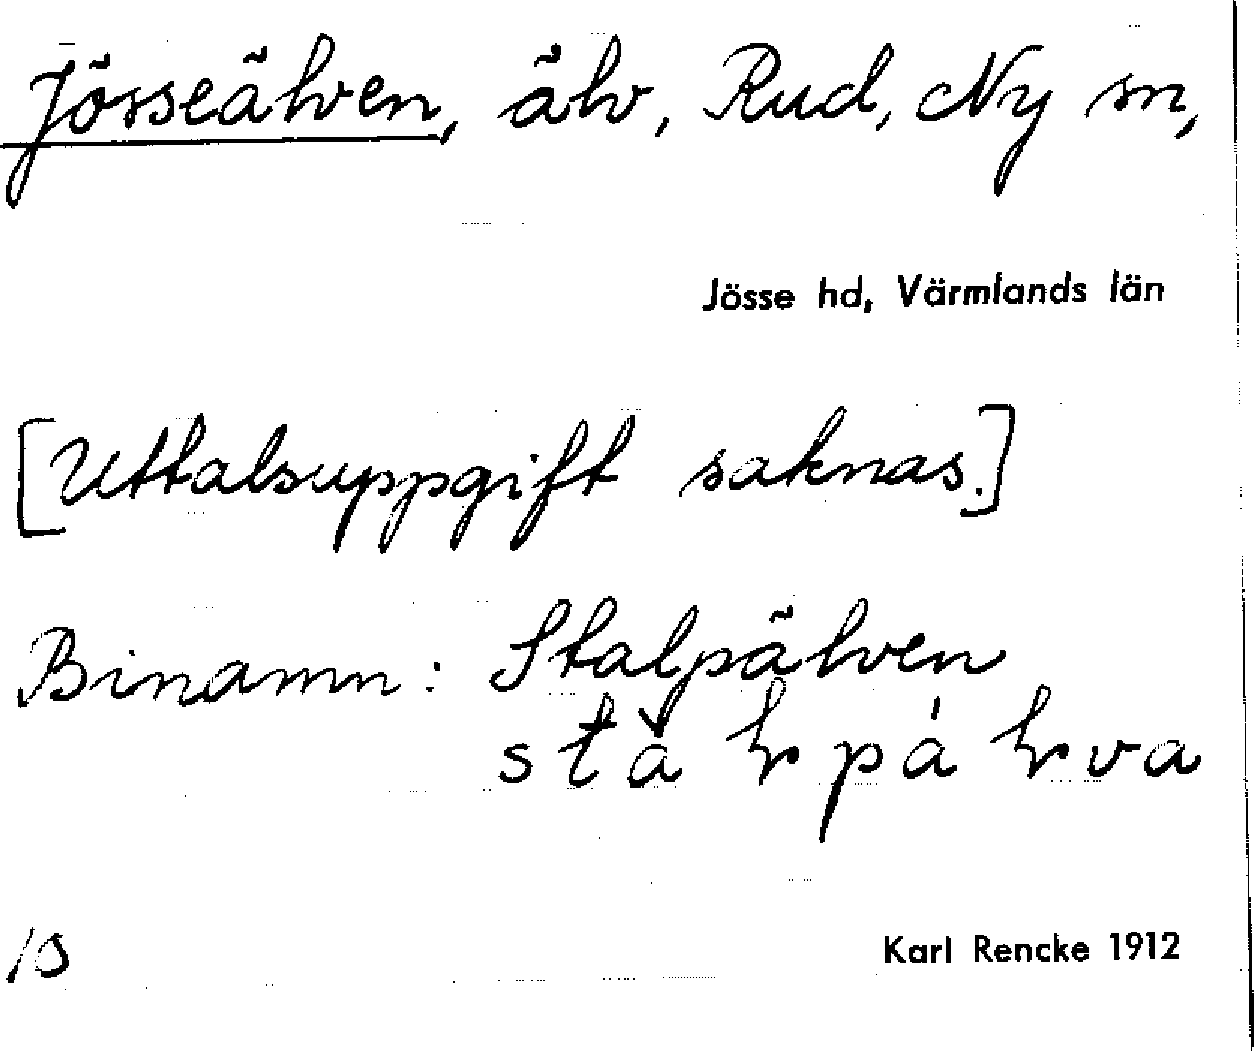 Jösseälven, älv, Rud, Ny sn,
Jösse hd, Värmlands län
[Uttalsuppgift saknas.]
Binamn: Stalpälven
10
Karl Rencke 1912